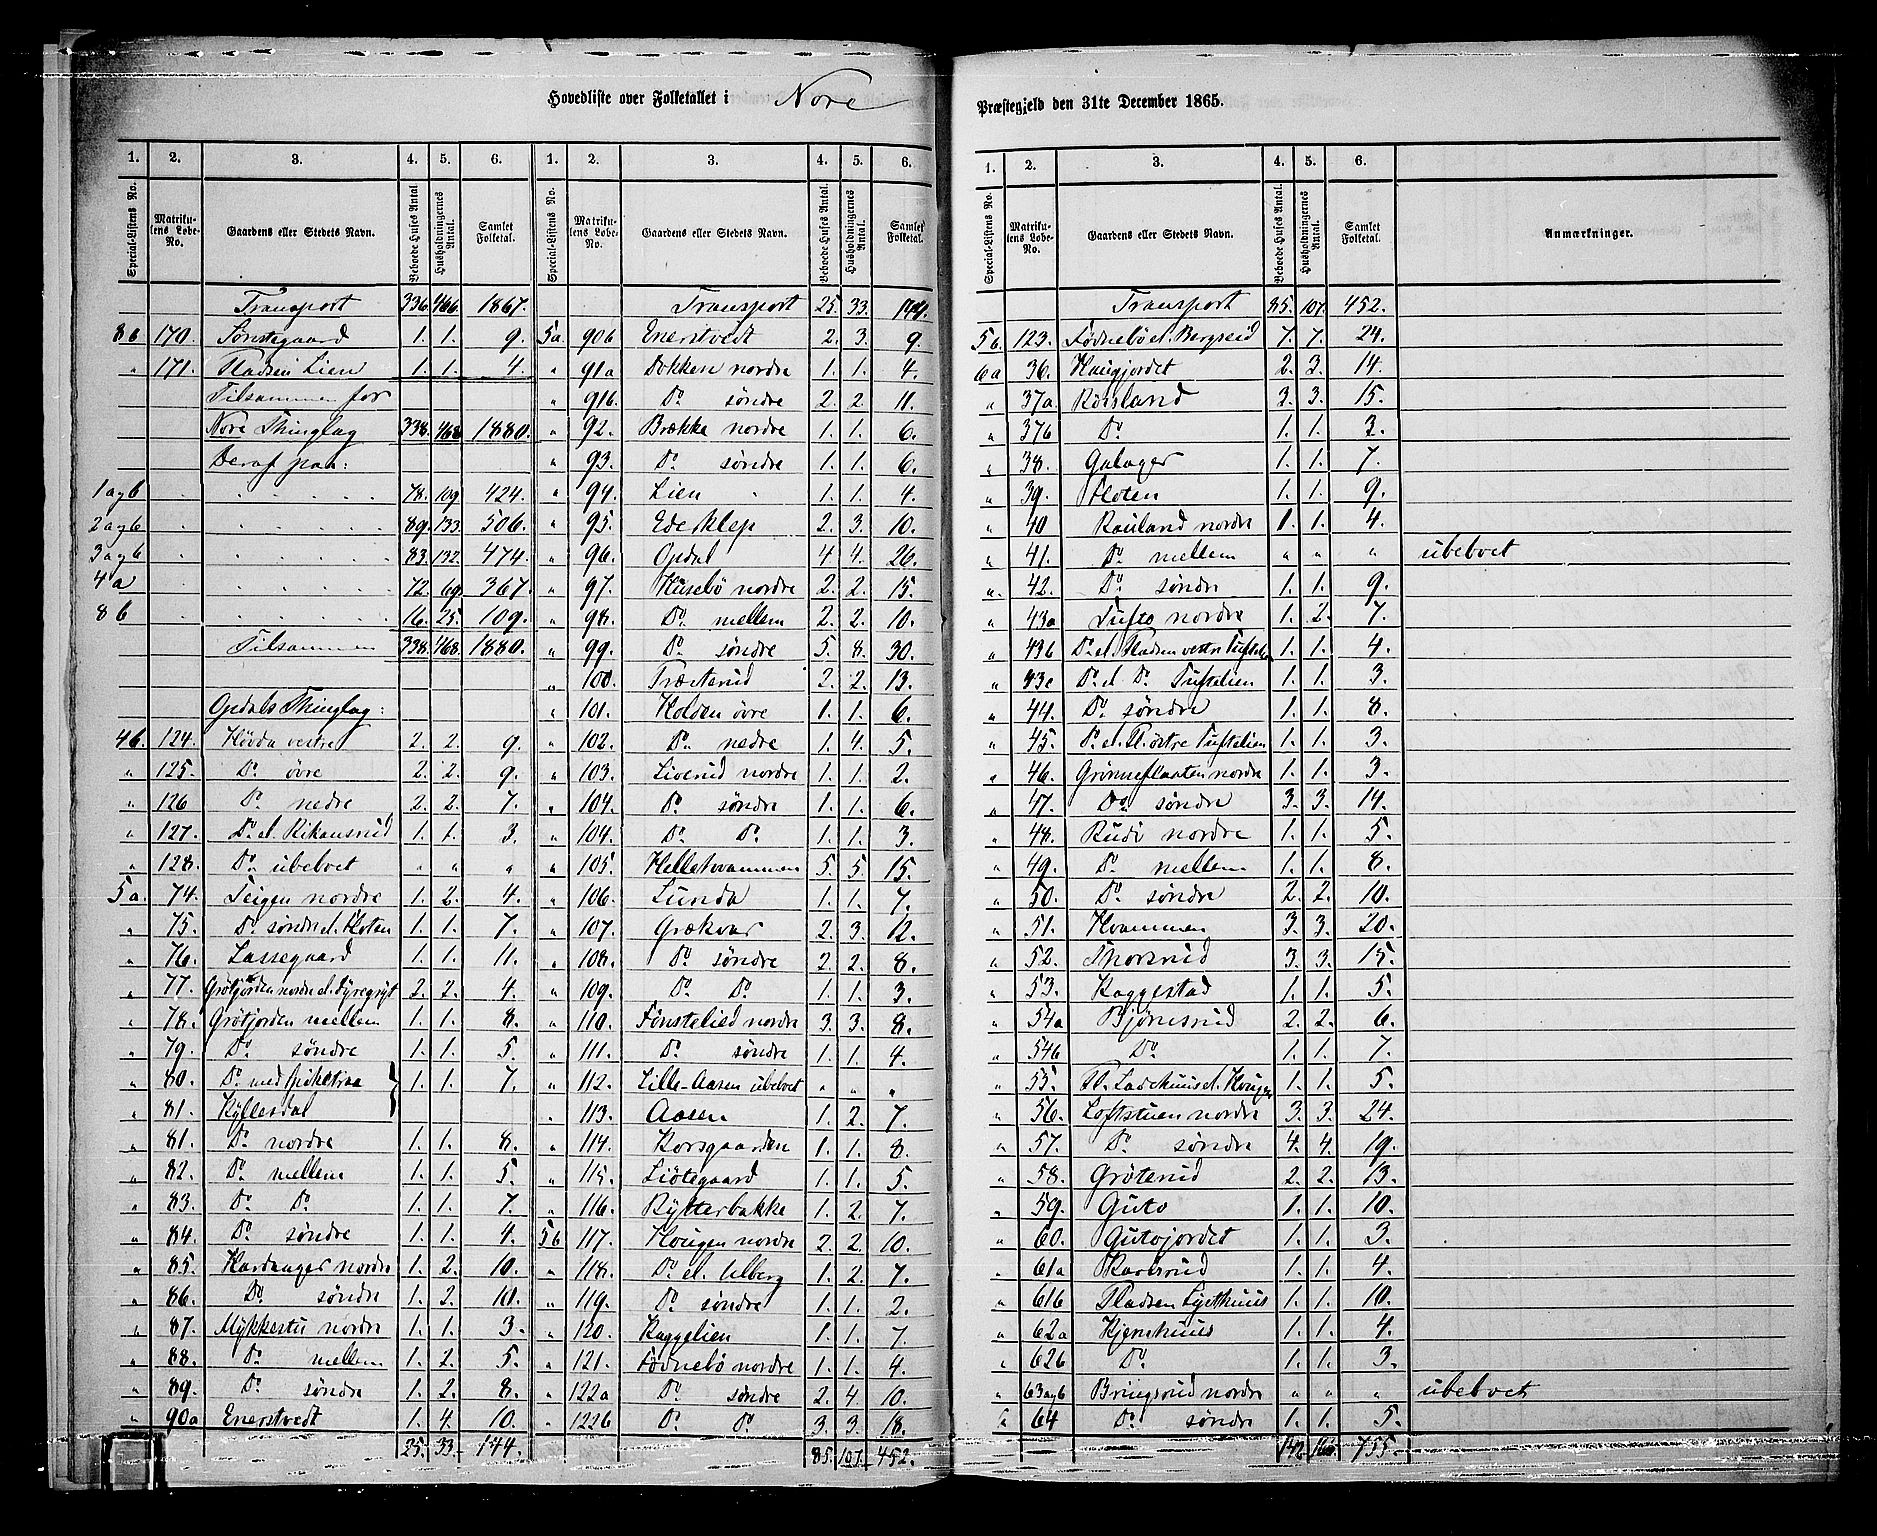 Hovedliste over Folketallet i Nore
Præstegjeld den 31te December 1865.
1. 2. 3. 4. 5. 6. 1. 2. 3. 4. 5. 6.
Special-Listens No. Matriku-lens Løbe-No. Gaardens eller Stedets Navn. Beboede Huses Antal. Husholdningernes Antal. Samlet Folketal. Special-Listens No. Matriku-lens Løbe-No. Gaardens eller Stedets Navn. Beboede Huses Antal. Husholdningernes Antal. Samlet Folketal.
Transport 336. 466. 1867.
8b 170. Sønstegaard 1. 1. 9.
" 171. Pladsen Lien 1. 1. 4.
Tilsammen for
Nore Thinglag 338. 468. 1880.
Deraf paa:
1 a og b 78. 109. 424.
2 a og b 89. 133. 506.
3 a og b 83. 132. 474.
4 a 72. 69. 367.
8 b 16. 25. 109.
Tilsammen 338. 468. 1880.
Opdals Thinglag:
4b. 124. Hövda vestre 2. 2. 9.
" 125. Do övre 2. 2. 9.
" 126 Do nedre 2. 2. 7.
" 127. Do el. Rikansrud 1. 1. 3.
" 128. Do ubebvet " " "
5a. 74. Teigen nordre 1. 2. 4.
" 75. Do søndre el. Floten 1. 1. 7.
" 76. Lassegaard 1. 1. 11.
" 77. Grøtjorden nordre el. Dyregryt 2. 2. 4.
" 78. Grøtjorden mellem 1. 1. 8.
" 79. Do søndre 1. 1. 5.
" 80. Do med 1. 1. 7.
" 81. Kyllesdal
" 81. Do nordre 1. 1. 8.
" 82. Do mellem 1. 1. 5.
" 83. Do Do 1. 1. 7.
" 84. Do søndre 1. 1. 4.
" 85. Hardanger nordre 1. 2. 10.
" 86. Do søndre 1. 2. 10.
" 87. Mykkestu nordre 1. 1. 3.
" 88. Do mellem 1. 2. 5.
" 89. Do søndre 1. 2. 8.
" 90a Enerstvedt 1. 4. 10.
25. 33. 144.
Transport 25. 33. 144.
5a 90b Enerstvedt 2. 3. 9.
" 91a Dokken nordre 1. 1. 4.
" 91b. Do søndre 2. 2. 11.
" 92. Brække nordre 1. 1. 6.
" 93. Do søndre 1. 1. 6.
" 94. Lien 1. 1. 4.
" 95. Ederklep 2. 3. 10.
" 96. Opdal 4. 4. 26.
" 97. Husebö nordre 2. 2. 15.
" 98. Do mellem 2. 2. 10.
" 99. Do søndre 5. 8. 30.
" 100. Træterud 2. 2. 13.
" 101. Holden övre 1. 1. 6.
" 102. Do nedre 1. 4. 5.
" 103. Liverud nordre 1. 1. 2.
" 104. Do søndre 1. 1. 6.
" 104. Do Do 1. 1. 3.
" 105. Helletvammen 5. 5. 15.
" 106. Lunda 1. 1. 7.
" 107. Grækvar 2. 3. 12.
" 108. Do søndre 2. 2. 8.
" 109. Do Do 1. 1. 3.
" 110. Fønstelied nordre 3. 3. 8.
" 111. Do søndre 1. 1. 4.
" 112. Lille-Aasen ubebvet " " "
" 113. Aasen 1. 2. 7.
" 114. Korsgaarden 1. 1. 8.
" 115. Liötegaard 1. 1. 5.
" 116. Rytterbakke 1. 2. 7.
5b 117. Hougen nordre 2. 2. 10.
" 118. Do el. Ulberg 1. 2. 7.
" 119. Do søndre 1. 1. 2.
" 120. Raggelien 1. 1. 7.
" 121. Födnebö nordre 1. 1. 4.
" 122a Do søndre 2. 4. 10.
" 122b Do Do 3. 3. 18.
85. 107. 452.
1. 2. 3. 4. 5. 6.
Special-Listens No. Matriku-lens Løbe-No. Gaardens eller Stedets Navn. Beboede Huses Antal. Husholdningernes Antal. Samlet Folketal. Anmærkninger.
Transport 85. 107. 452.
5b. 123. Födnebö el. Bergseid 7. 7. 24.
6a 36. Haugjordet 2. 3. 14.
" 37a Rörsland 3. 3. 15.
" 37b Do 1. 1. 3.
" 38. Galager 1. 1. 7.
" 39. Floten 1. 1. 9.
" 40 Rauland nordre 1. 1. 4.
" 41. Do mellem " " " ubebvet
" 42. Do søndre 1. 1. 9.
" 43a Tufto nordre 1. 2. 7.
" 43b Do el. Pladsen vestre Tuftelien 1. 1. 4.
" 43c Do el. Do Tuftelien 1. 1. 3.
" 44. Do søndre 1. 1. 8.
" 45. Do el. Pl. östre Tuftelien 1. 1. 3.
" 46. Grönneflaaten nordre 1. 1. 3.
" 47. Do søndre 3. 3. 14.
" 48. Rudi nordre 1. 1. 5.
" 49. Do mellem 1. 1. 8.
" 50. Do søndre 2. 2. 10.
" 51. Hvammen 3. 3. 20.
" 52. Thorsrud 3. 3. 15.
" 53. Raggestad 1. 1. 5.
" 54a Bjönsrud 2. 2. 6.
" 54b Do 1. 1. 7.
" 55. Pl. Ladehuus el. Hougen 1. 1. 5.
" 56. Loftstuen nordre 3. 3. 24.
" 57. Do søndre 4. 4. 19.
" 58. Grøterud 2. 2. 13.
" 59. Guto 1. 1. 10.
" 60. Gutojordet 1. 1. 3.
" 61a Karlsrud 1. 1. 4.
" 61b Pladsen 1. 1. 10.
" 62a Hjemhuus 1. 1. 4.
" 62b Do 1. 1. 3.
" 63a og b Bringsrud nordre " " " ubebvet
" 64 Do søndre 1. 1. 5.
142. 166. 755.